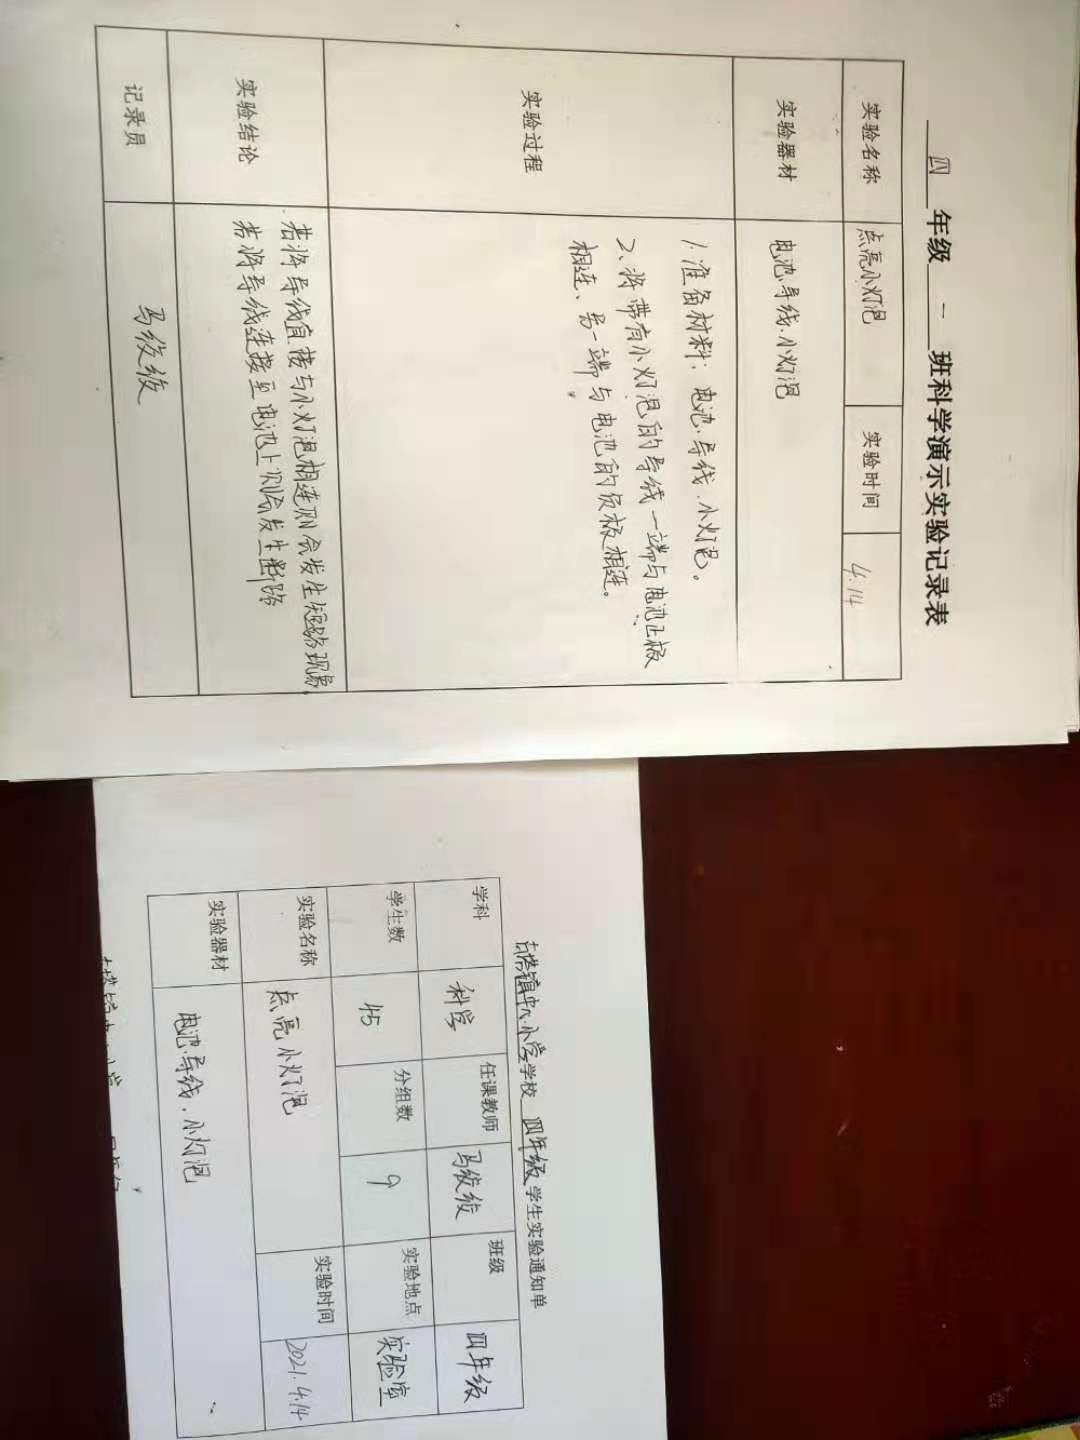 四年级一班科学演示实验记录表
实验名称 点亮小灯泡 实验时间 4.14
实验器材 电池、导线、小灯泡
实验过程
1.准备材料：电池、导线、小灯泡。
2、将带有小灯泡的导线一端与电池正极
相连、另一端与电池的负极相连。
实验结论
若将导线直接与小灯泡相连则会发生短路现象,
若将导线连接至电池上则会发生断路
记录员
镇中心小学学校 四年级学生实验通知单
学科 科学 任课教师 班级 四年级
学生数 45 分组数 9 实验地点 实验室
实验名称 点亮小灯泡 实验时间 2021.4.14
实验器材 电池、导线、小灯泡